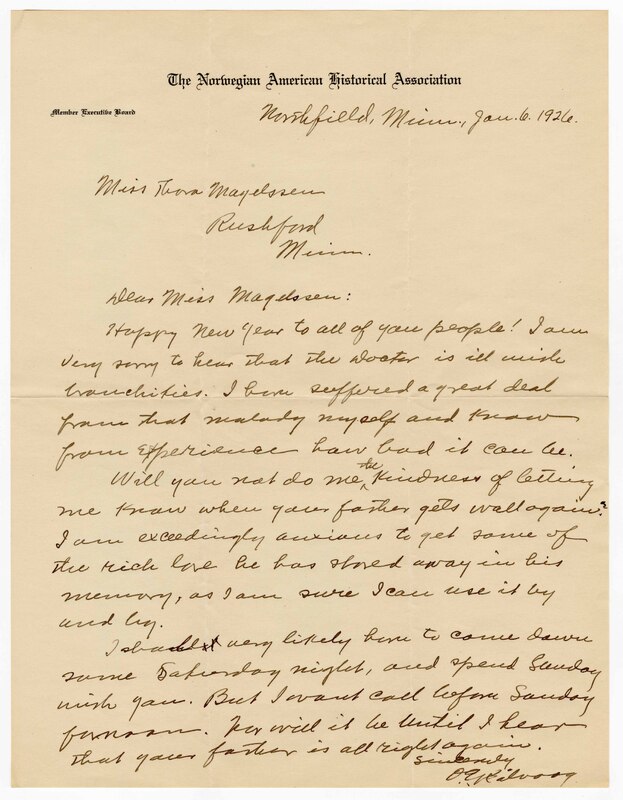 The Norwegian American Historical Association
Member Executive Board
Northfield, Minn., Jan. 6. 1926.
Miss Thora Magelssen
Rushford
Minn.
Dear Miss Magelssen:
Happy New Year to all of you people! I am
very sorry to hear that the Doctor is ill with
bronchities. I have suffered a great deal
from that malady myself and know
from experience how bad it can be.
Will you not do me the kindness of letting
me know when your father gets well again?
I am exceedingly anxious to get some of
the rich lore he has stored away in his
memory, as I am sure I can use it by
and by.
I shall very likely have to come down
some Saturday night, and spend Sunday
with you. But I won't call before Sunday
forenoon. Nor will it be until I hear
that your father is all right again.
Sincerely
O. E. Rölvaag